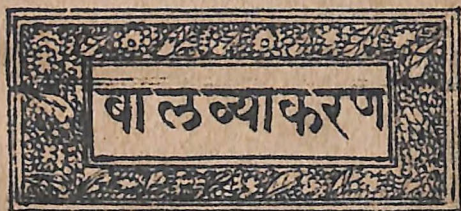 बालव्याकरण